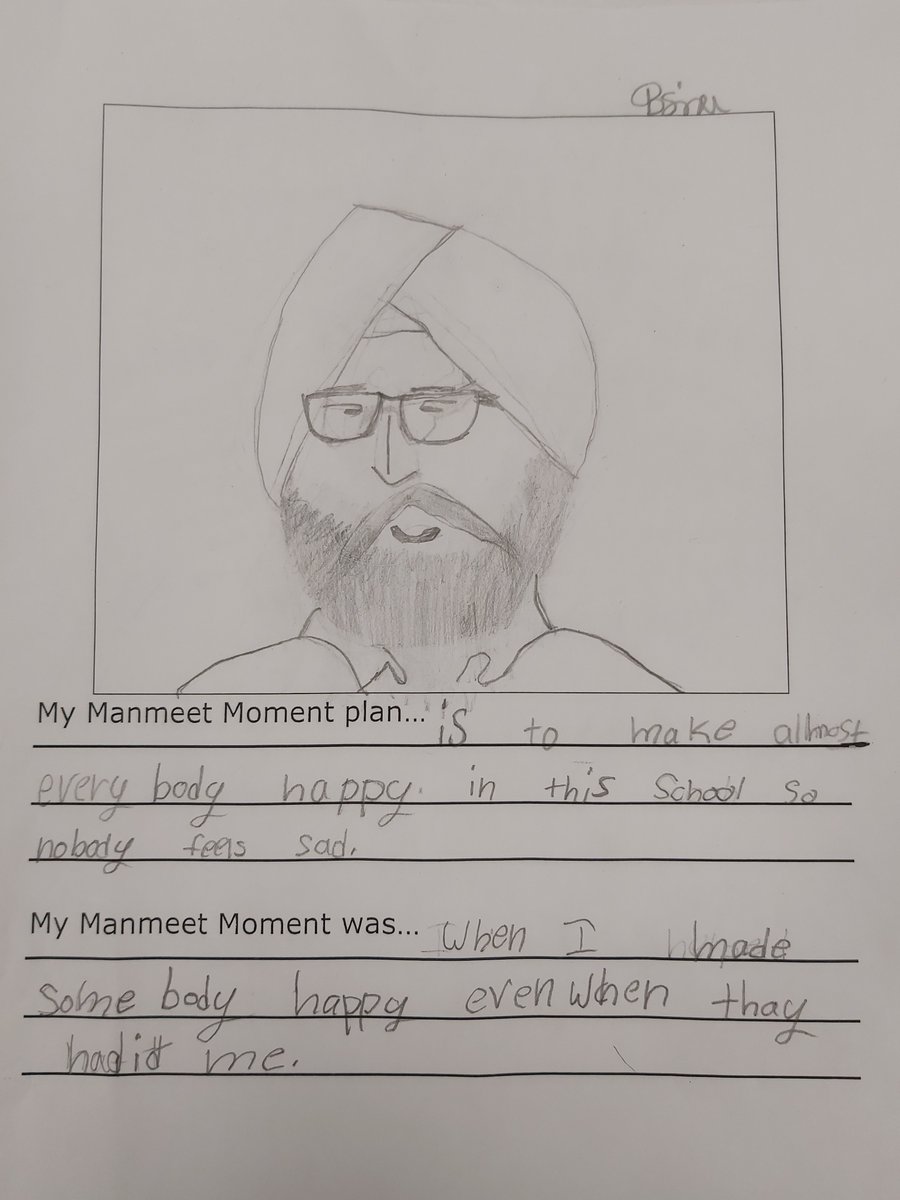 My Manmeet Moment plan... is to make almost
every body happy. in this School so
nobody feels sad.
My Manmeet Moment was... When I made
Some body happy even when thay
hadid me.